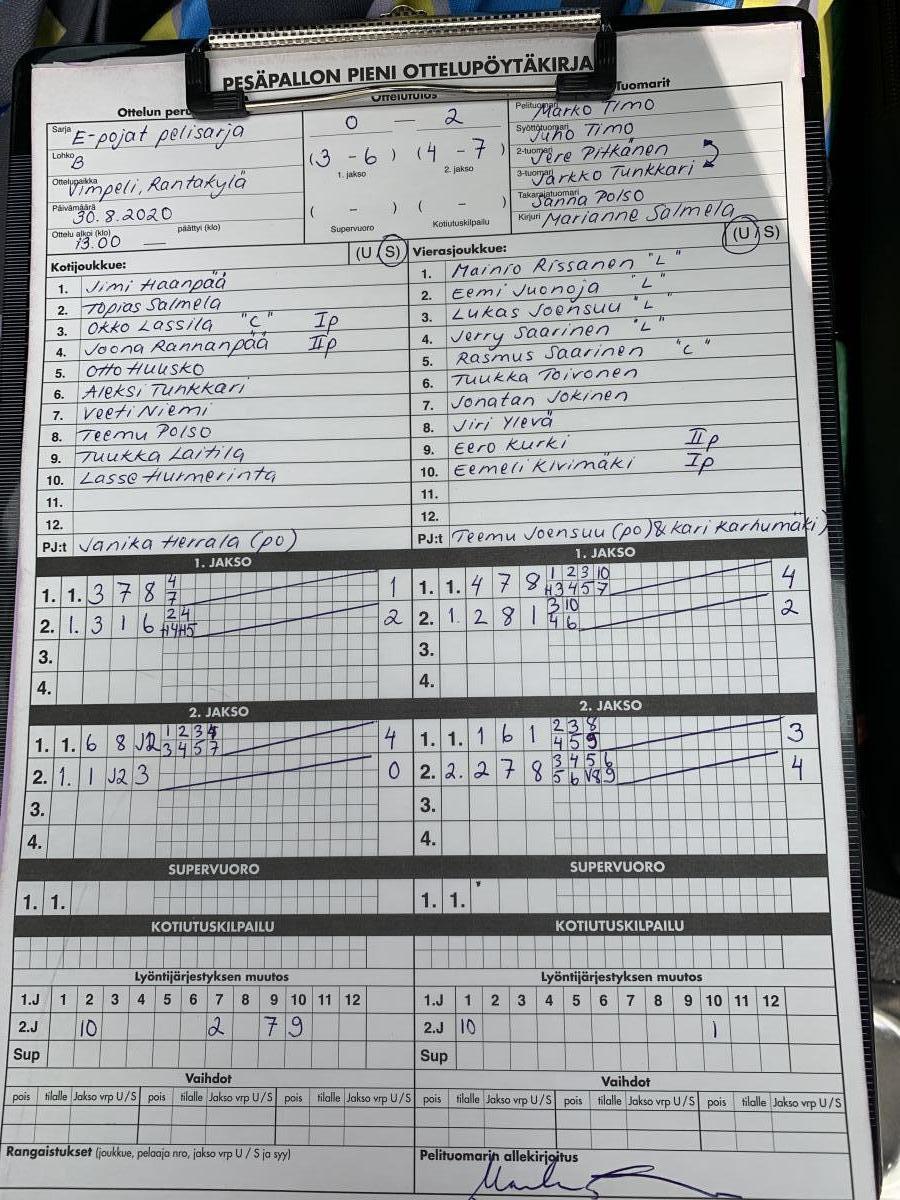 PESÄPALLON PIENI OTTELUPÖYTÄKIRJA
Ottelun peru
Sarja E-pojat pelisarja
Lohko B
Ottelupaikka Vimpeli, Rantakylä
Päivämäärä 30.8.2020
Ottelu alkoi (klo) 13.00 päättyi (klo) —
Ottelutulos
0 — 2
(3 - 6) (4 - 7)
1. jakso 2. jakso
( - ) ( - )
Supervuoro Kotiutuskilpailu
Tuomarit
Pelituomari Marko Timo
Syöttötuomari Juho Timo
2-tuomari Jere Pitkänen
3-tuomari Jarkko Tunkkari
Takarajatuomari Sanna Polso
Kirjuri Marianne Salmela
Kotijoukkue: (U S)
1. Jimi Haanpää
2. Topias Salmela
3. Okko Lassila "C" Ip
4. Joona Rannanpää IIp
5. Otto Huusko
6. Aleksi Tunkkari
7. Veeti Niemi
8. Teemu Polso
9. Tuukka Laitila
10. Lasse Hurmerinta
11.
12.
PJ:t Janika Herrala (po)
Vierasjoukkue: (U S)
1. Mainio Rissanen "L"
2. Eemi Juonoja "L"
3. Lukas Joensuu "L"
4. Jerry Saarinen "L"
5. Rasmus Saarinen "C"
6. Tuukka Toivonen
7. Jonatan Jokinen
8. Jiri Ylevä
9. Eero Kurki IIp
10. Eemeli Kivimäki Ip
11.
12.
PJ:t Teemu Joensuu (po) & Kari Karhumäki)
1. JAKSO
1. 1. 3 7 8 4 1
7
2. 1. 3 1 6 2 4 2
H4 H5
3.
4.
1. JAKSO
1. 1. 4 7 8 1 2 3 10 4
H3 4 5 7
2. 1. 2 8 1 3 10 2
4 6
3.
4.
2. JAKSO
1. 1. 6 8 J2 1 2 3 4 4
3 4 5 7
2. 1. 1 J2 3 0
3.
4.
2. JAKSO
1. 1. 1 6 1 2 3 8 3
4 5 9
2. 2. 2 7 8 3 4 5 6 4
5 6 V8 9
3.
4.
SUPERVUORO SUPERVUORO
1. 1. 1. 1.
KOTIUTUSKILPAILU KOTIUTUSKILPAILU
Lyöntijärjestyksen muutos
1.J 1 2 3 4 5 6 7 8 9 10 11 12
2.J 10 2 7 9
Sup
Lyöntijärjestyksen muutos
1.J 1 2 3 4 5 6 7 8 9 10 11 12
2.J 10 1
Sup
Vaihdot Vaihdot
pois tilalle Jakso vrp U / S pois tilalle Jakso vrp U / S pois tilalle Jakso vrp U / S pois tilalle Jakso vrp U / S pois tilalle Jakso vrp U / S pois tilalle Jakso vrp U / S
Rangaistukset (joukkue, pelaaja nro, jakso vrp U / S ja syy)
Pelituomarin allekirjoitus